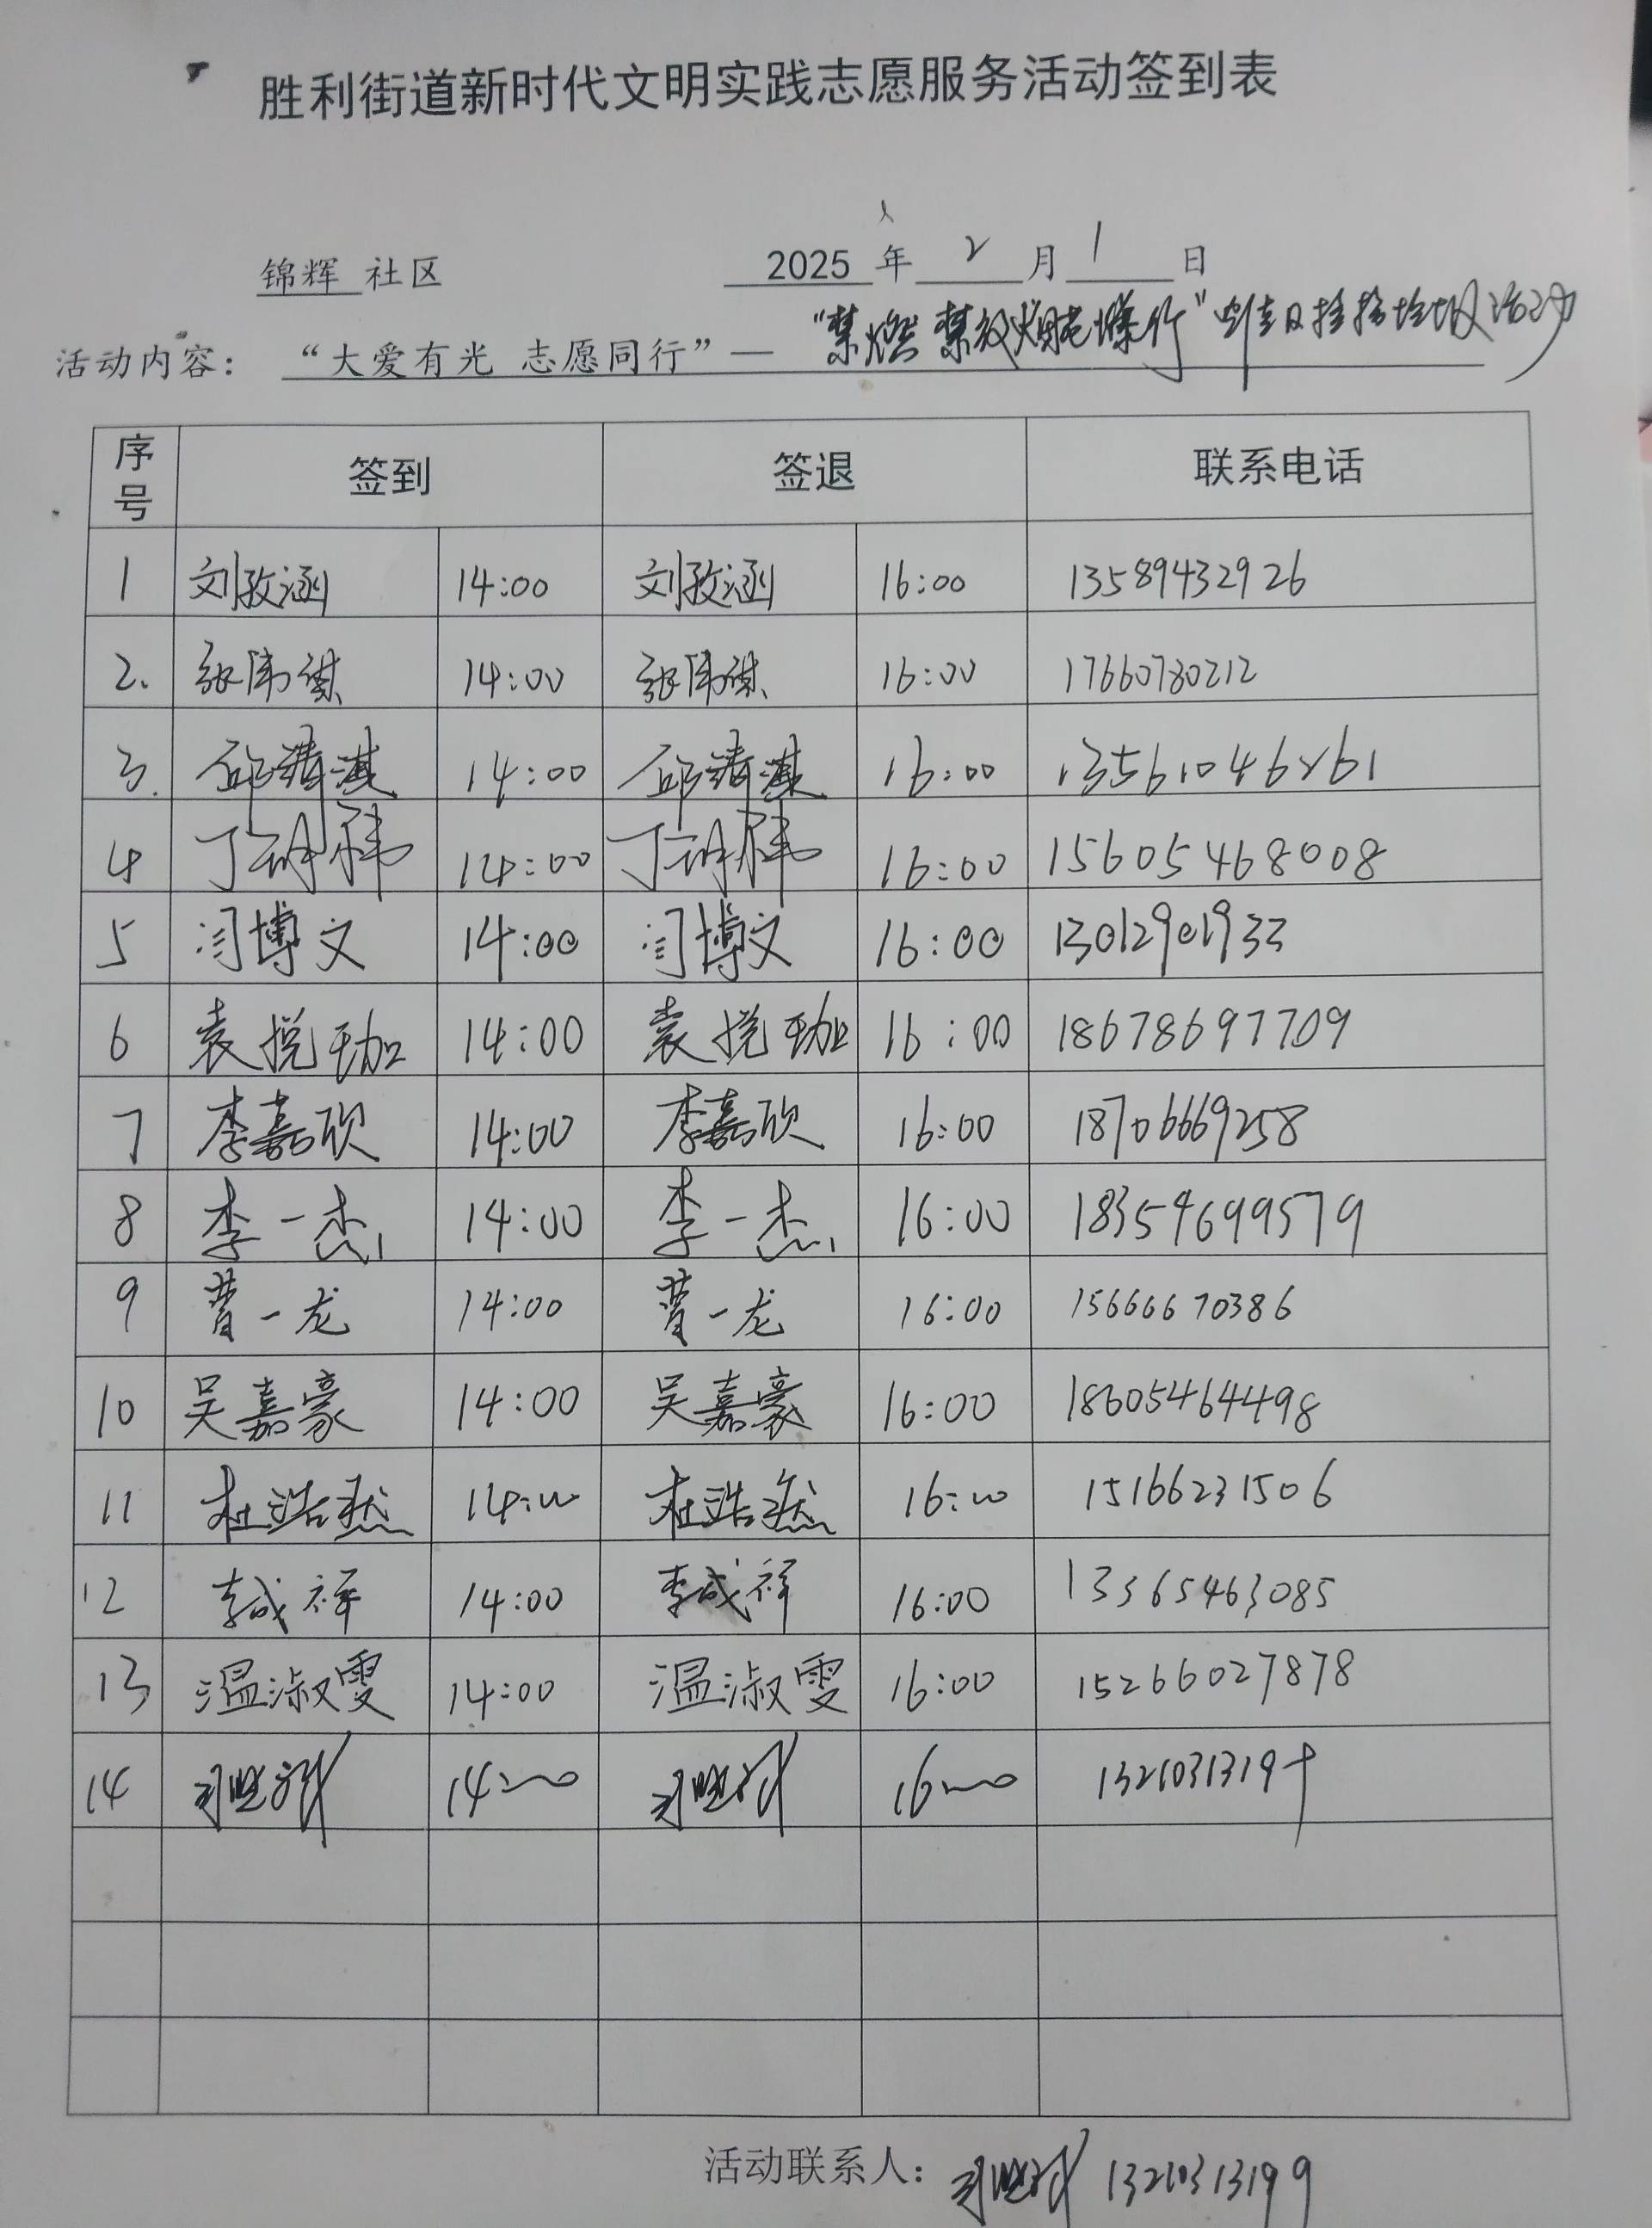 胜利街道新时代文明实践志愿服务活动签到表
锦辉 社区 2025 年 2 月 1 日
活动内容： “大爱有光 志愿同行”— “禁燃禁放烟花爆竹” 捡拾垃圾活动
序号 签到 签退 联系电话
1 刘孜涵 14:00 刘孜涵 16:00 13589432926
2. 张伟祺 14:00 张伟祺 16:00 17660780212
3. 邱靖淇 14:00 邱靖淇 16:00 13561046261
4 丁祎 14:00 丁祎 16:00 15605468008
5 闫博文 14:00 闫博文 16:00 13012901933
6 袁悦珈 14:00 袁悦珈 16:00 18678697709
7 李嘉欣 14:00 李嘉欣 16:00 18706669258
8 李一杰 14:00 李一杰 16:00 18354699579
9 曹一龙 14:00 曹一龙 16:00 15666670386
10 吴嘉豪 14:00 吴嘉豪 16:00 18605464498
11 杜浩然 14:00 杜浩然 16:00 15166231506
12 李成祥 14:00 李成祥 16:00 13365463085
13 温淑雯 14:00 温淑雯 16:00 15266027878
14 14:00 16:00 13210313199
活动联系人： 13210313199